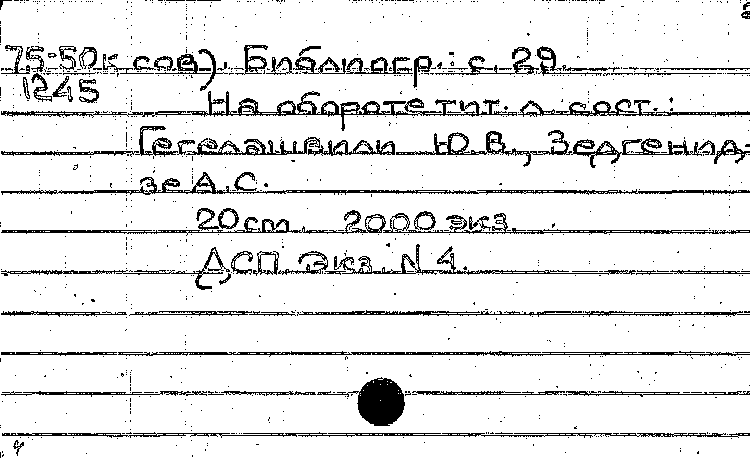 75-50к сов). Библиогр.: с. 29.
1245
На обороте тит. л. сост.:
Гегелашвили Ю.В., Зедгенид-
зе А.С.
20 cm. 2000 экз.
ДСП. Экз. N 4.